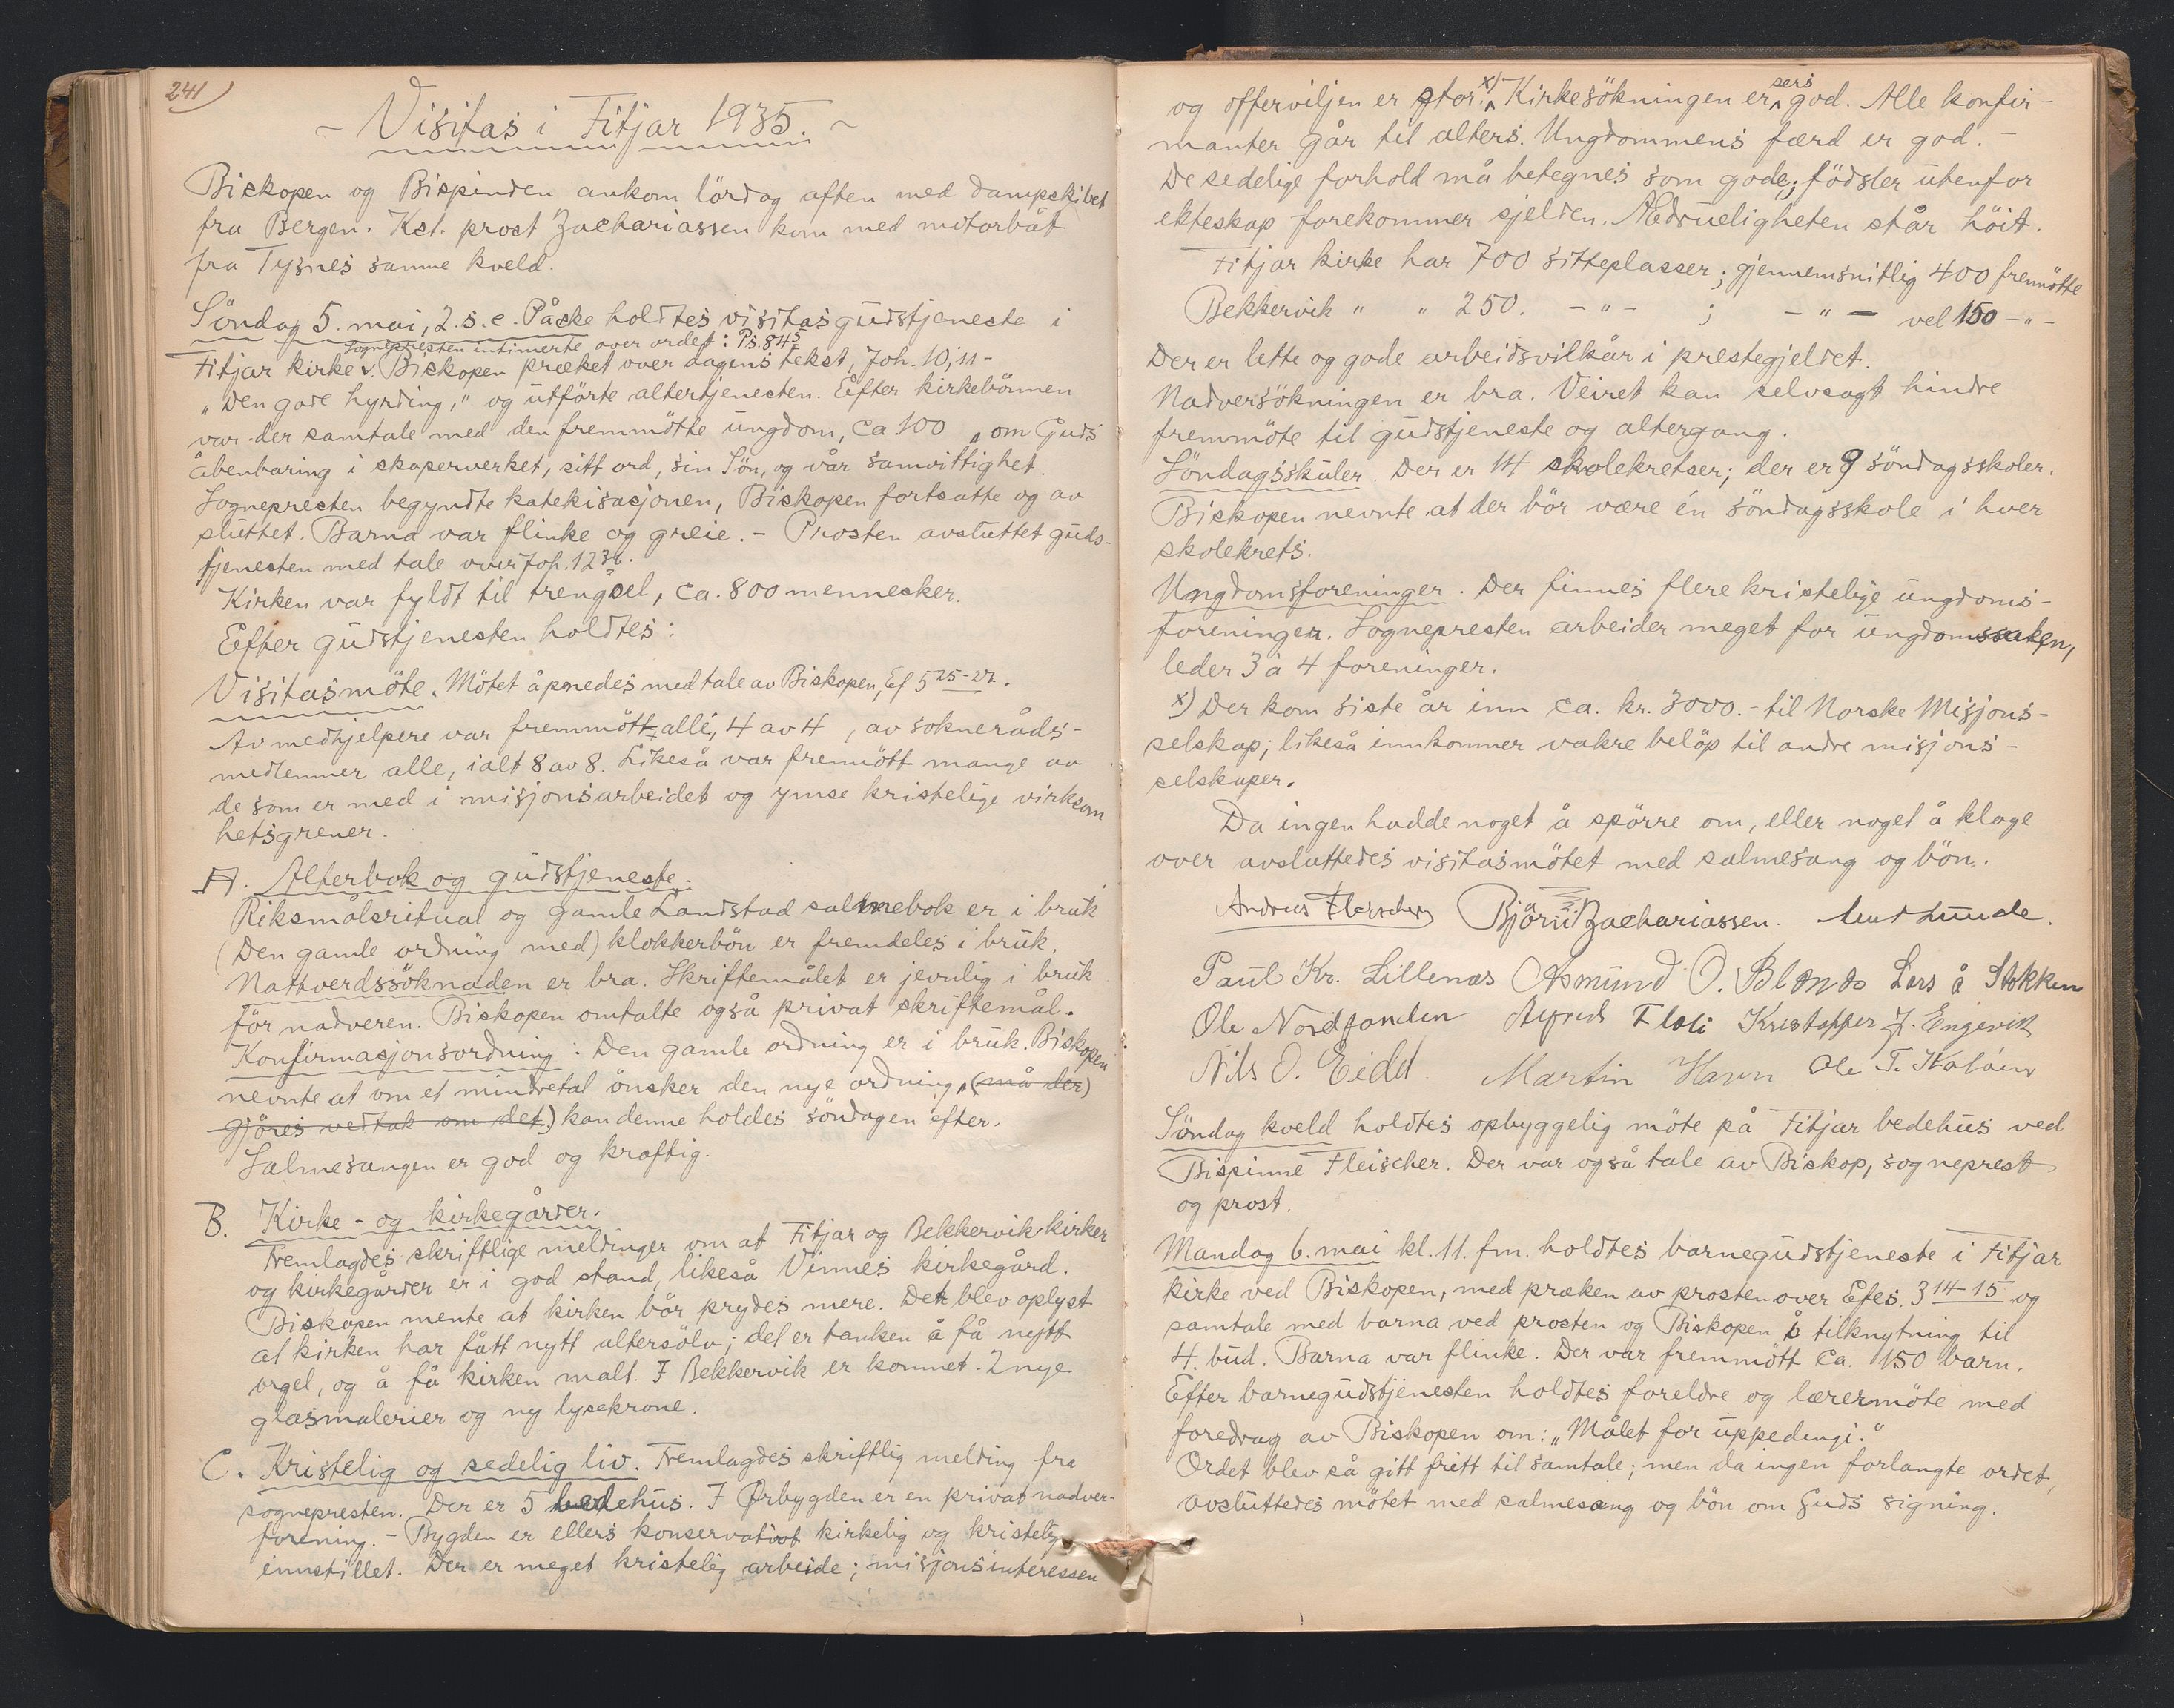 241
- Visitas i Fitjar 1935. -
Biskopen og Bispinden ankom lördag aften med dampskibet
fra Bergen. Kst. prost Zachariassen kom med motorbåt
fra Tysnes samme kveld.
Söndag 5. mai, 2. s. e. Påske holdtes visitasgudstjeneste i
Sognepresten intimerte over ordet: Ps. 84 5
Fitjar kirke v. Biskopen præket over dagens tekst, Joh. 10, 11-
"Den gode hyrding," og utförte altertjenesten. Efter kirkebönnen
var der samtale med den fremmötte ungdom, ca 100 „ om Guds
åbenbaring i skaperverket, sitt ord, sin Sön, og vår samvittighet.
Sognepresten begyndte katekisasjonen, Biskopen fortsatte og av
sluttet. Barna var flinke og greie. - Prosten avsluttet guds-
tjenesten med tale over Joh. 12 32.
Kirken var fyldt til trengsel, ca. 800 mennesker.
Eefter gudstjenesten holdtes:
Visitasmöte. Mötet åpnedes med tale av Biskopen, Ef 5 25-27.
Av medhjelpere var fremmött alle, 4 av 4, av sokneråds-
medlemmer alle, ialt 8 av 8. Likeså var fremmött mange av
de som er med i misjonsarbeidet og ymse kristelige virksom
hetsgrener.
A. Alterbok og gudstjeneste.
Riksmålsritual og gamle Landstad salmebok er i bruk
(Den gamle ordning med) klokkerbön er fremdeles i bruk.
Nattverdssöknaden er bra. Skriftemålet er jevnlig i bruk
för nadveren. Biskopen omtalte også privat skriftemål.
Konfirmasjonsordning: Den gamle ordning er i bruk. Biskopen
nevnte at om et mindretal önsker den nye ordning, (må der)
gjöres vedtak om det) kan denne holdes söndagen efter.
Salmesangen er god og kraftig.
B. Kirke- og kirkegårder.
Fremlagdes skriftlige meldinger om at Fitjar og Bekkervik kirker
og kirkegårder er i god stand, likeså Vinnes kirkegård.
Biskopen mente at kirken bör prydes mere. Det blev oplyst
at kirken har fått nytt altersölv; det er tanken å få nytt
orgel, og å få kirken malt. I Bekkervik er kommet 2 nye
glasmalerier og ny lysekrone.
C. Kristelig og sedelig liv. Fremlagdes skriftlig melding fra
sognepresten. Der er 5 bedehus. I Örbygden er en privat nadver-
forening. - Bygden er ellers konservativt kirkelig og kristelig
innstillet. Der er meget kristelig arbeide; misjonsinteressen
og offerviljen er stor. x) Kirkesökningen er sers god. Alle konfir-
manter går til alters. Ungdommens færd er god. -
De sedelige forhold må betegnes som gode; födsler utenfor
ekteskap forekommer sjelden. Ædrueligheten står höit.
Fitjar kirke har 700 sitteplasser; gjennemsnitlig 400 fremmötte
Bekkervik " " 250. - " - ; - " - vel 150 - " -
Der er lette og gode arbeidsvilkår i prestegjeldet.
Nadversökningen er bra. Veiret kan selvsagt hindre
fremmöte til gudstjeneste og altergang.
Söndagsskuler. Der er 14 skolekretser; der er 9 söndagsskoler.
Biskopen nevnte at der bör være én söndagsskole i hver
skolekrets.
Ungdomsforeninger. Der finnes flere kristelige ungdoms-
foreninger. Sognepresten arbeider meget for ungdomssaken,
leder 3 à 4 foreninger.
x) Der kom siste år inn ca. kr. 3000.- til Norske Misjons-
selskap; likeså innkommer vakre belöp til andre misjons-
selskaper.
Da ingen hadde noget å spörre om, eller noget å klage
over avsluttedes visitasmötet med salmesang og bön.
Andreas Fleischer Björn Zachariassen. Knut Lunde.
Paul Kr. Lillenes Asmund O. Blånes Lars å Stokken
Ole Nordfonden Alfred Flåti Kristoffer J. Engevik
Nils O. Eide Martin Havn Ole T. Kaloen
Söndag kveld holdtes opbyggelig möte på Fitjar bedehus ved
Bispinne Fleischer. Der var også tale av Biskop, sogneprest
og prost.
Mandag 6. mai kl. 11. fm. holdtes barnegudstjeneste i Fitjar
kirke ved Biskopen, med præken av prosten over Efes. 3 14-15 og
samtale med barna ved prosten og Biskopen i tilknytning til
4. bud. Barna var flinke. Der var fremmött ca. 150 barn.
Efter barnegudstjenesten holdtes foreldre og lærermöte med
foredrag av Biskopen om: „Målet for uppedingi."
Ordet blev så gitt fritt til samtale; men da ingen forlangte ordet,
avsluttedes mötet med salmesang og bön om Guds signing.